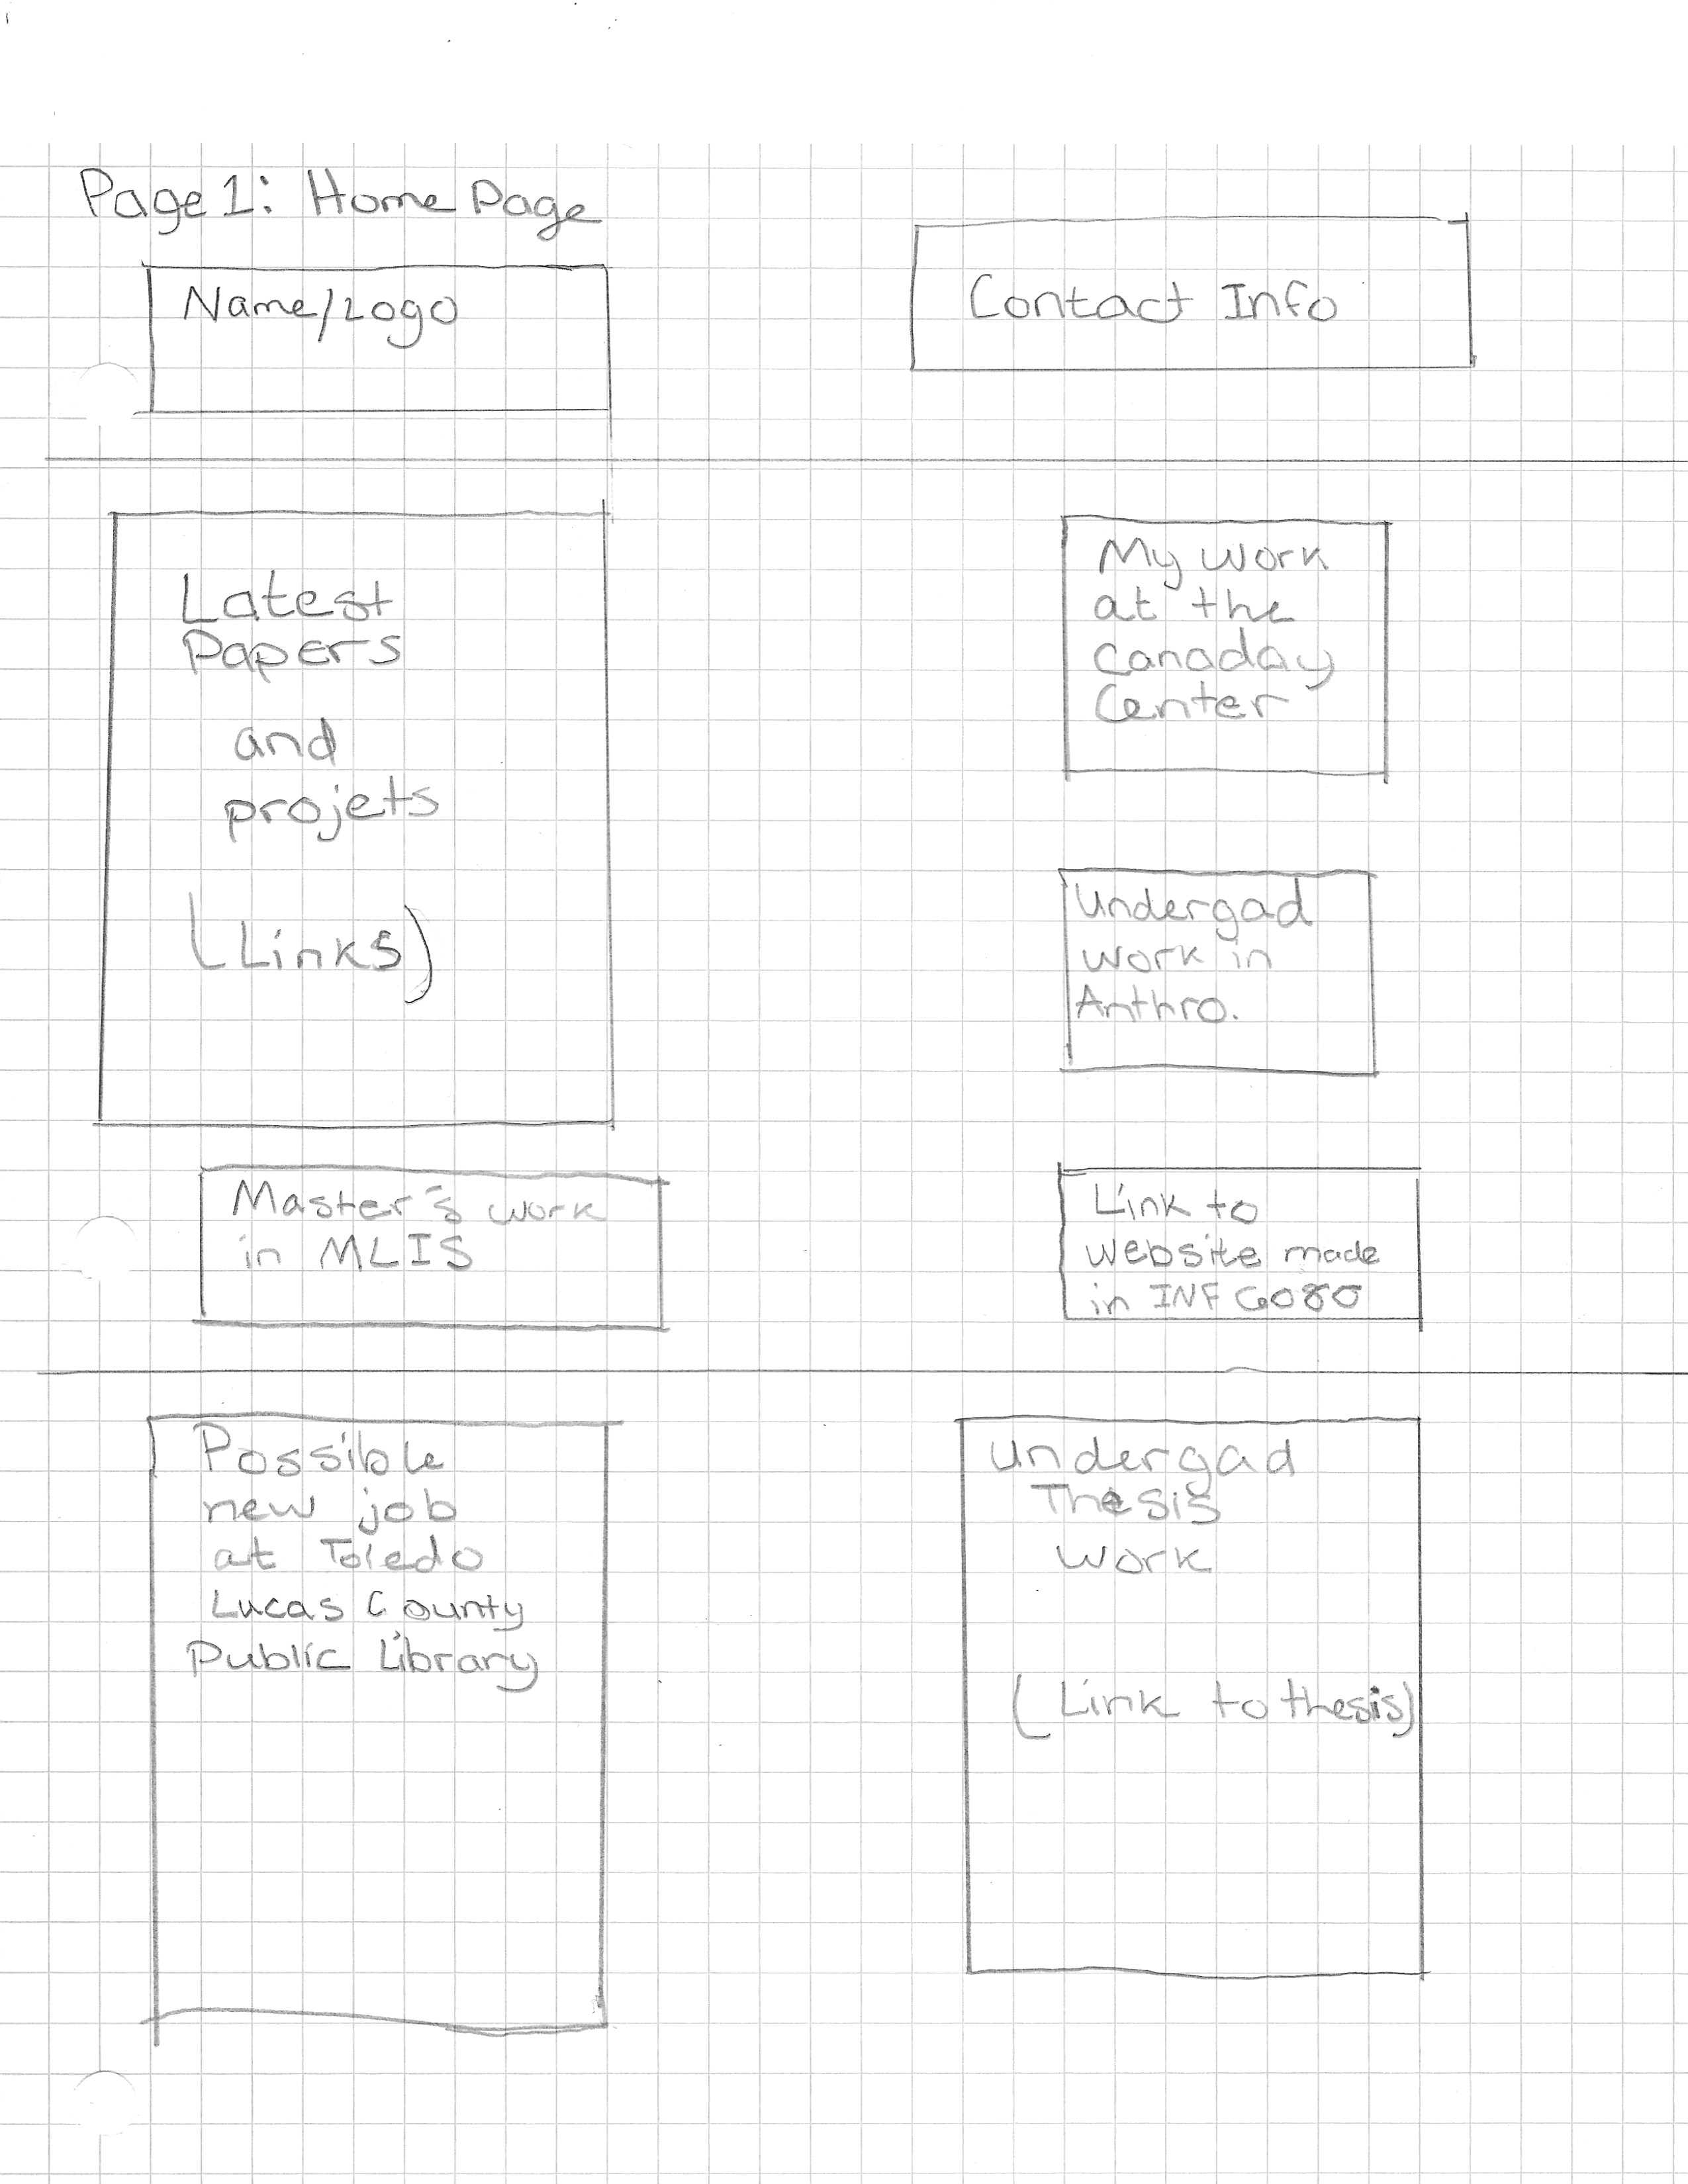 Page 1: Home Page
Name/Logo
Contact Info
Latest
Papers
and
projets
(Links)
My work
at the
Canaday
Center
Undergad
work in
Anthro.
Master's work
in MLIS
Link to
website made
in INF 6080
Possible
new job
at Toledo
Lucas County
Public Library
undergad
Thesis
work
(Link to thesis)